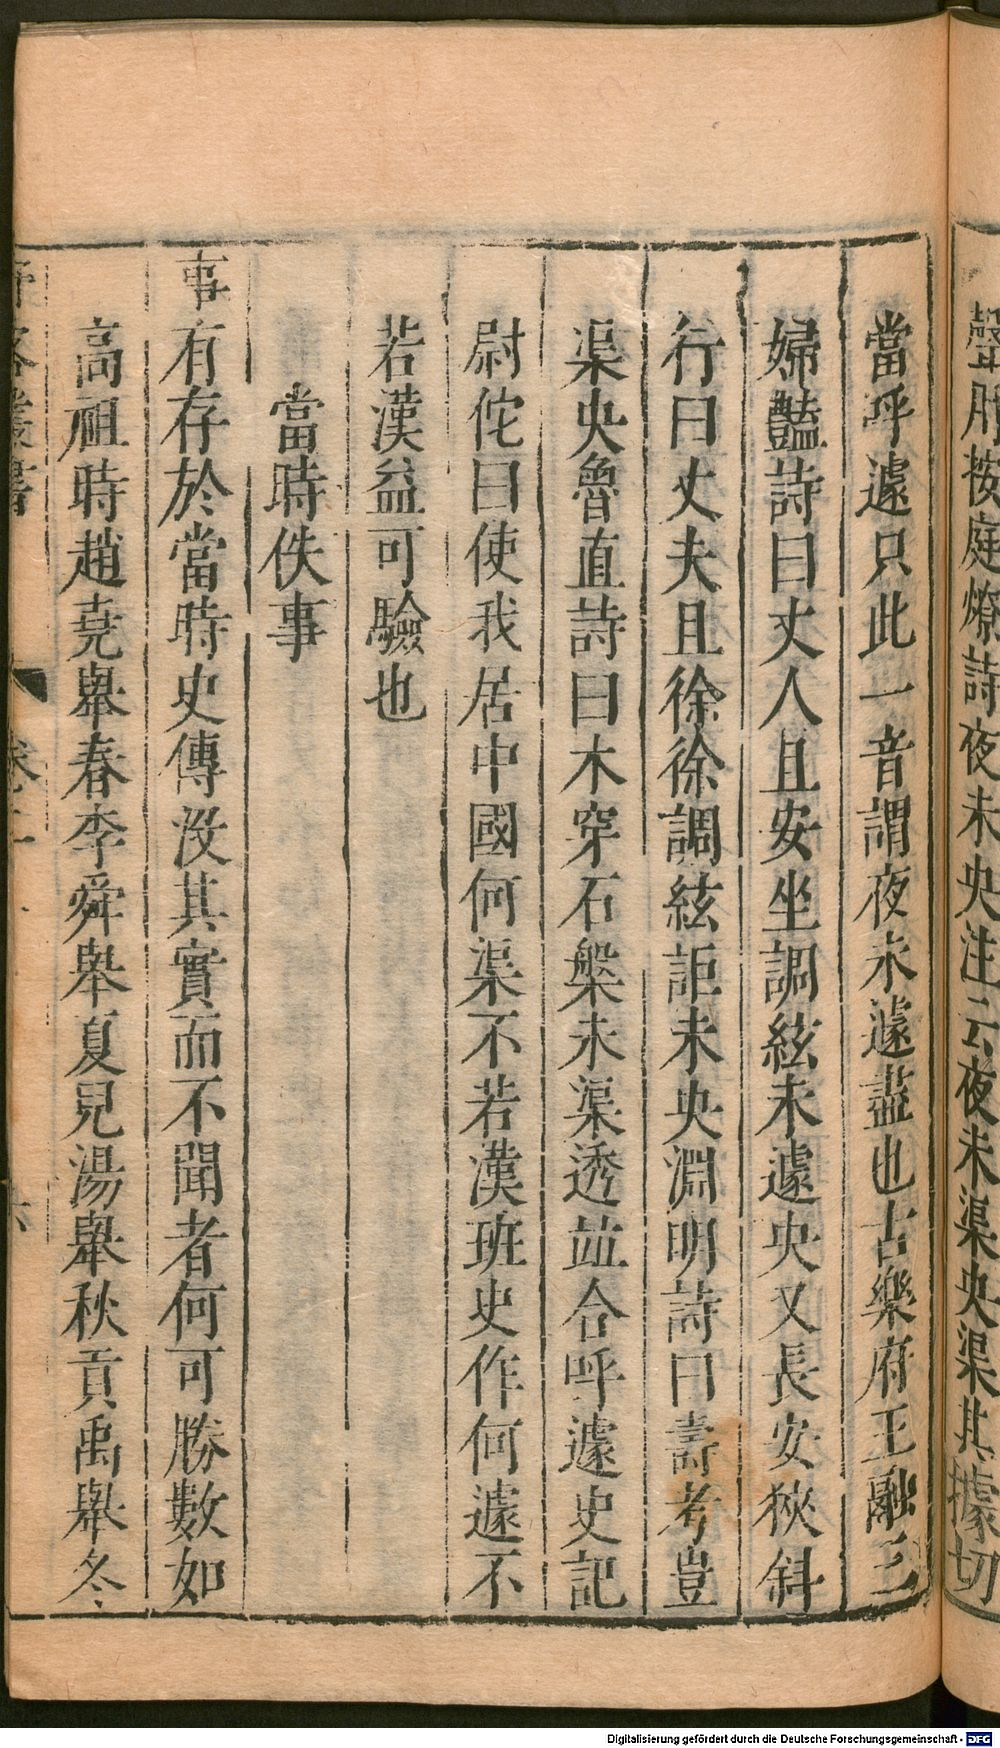 聲肝按庭燎詩夜未央注云夜未渠央渠其據切
當呼遽只此一音謂夜未遽盡也古樂府王融三
婦豔詩曰丈人且安坐調絃未遽央又長安狹斜
行曰丈夫且徐徐調絃詎未央淵明詩曰壽考豈
渠央魯直詩曰木穿石槃未渠透竝合呼遽史記
尉佗曰使我居中國何渠不若漢班史作何遽不
若漢益可驗也
當時佚事
事有存於當時史傳沒其實而不聞者何可勝數如
高祖時趙堯舉春李舜舉夏兒湯舉秋貢禹舉冬
卷二
六
Digitalisierung gefördert durch die Deutsche Forschungsgemeinschaft - DFG